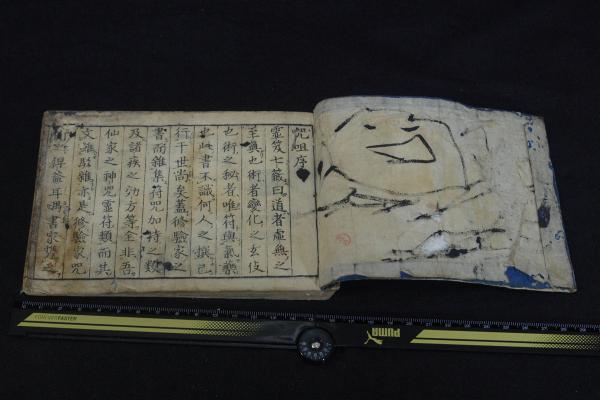 呪咀序
靈笈七籤曰道者虛無之
至真也術者變化之玄伎
也術之秘者唯符與氣藥
也此書不識何人之撰已
行于世尚矣蓋修驗家之
書而雜集符呪加持之類
及諸疾之効方等全非吾
仙家之神呪靈符類而其
文雖駁雜亦是修驗家呪
耳 書
FOREVER FASTER
PUMA